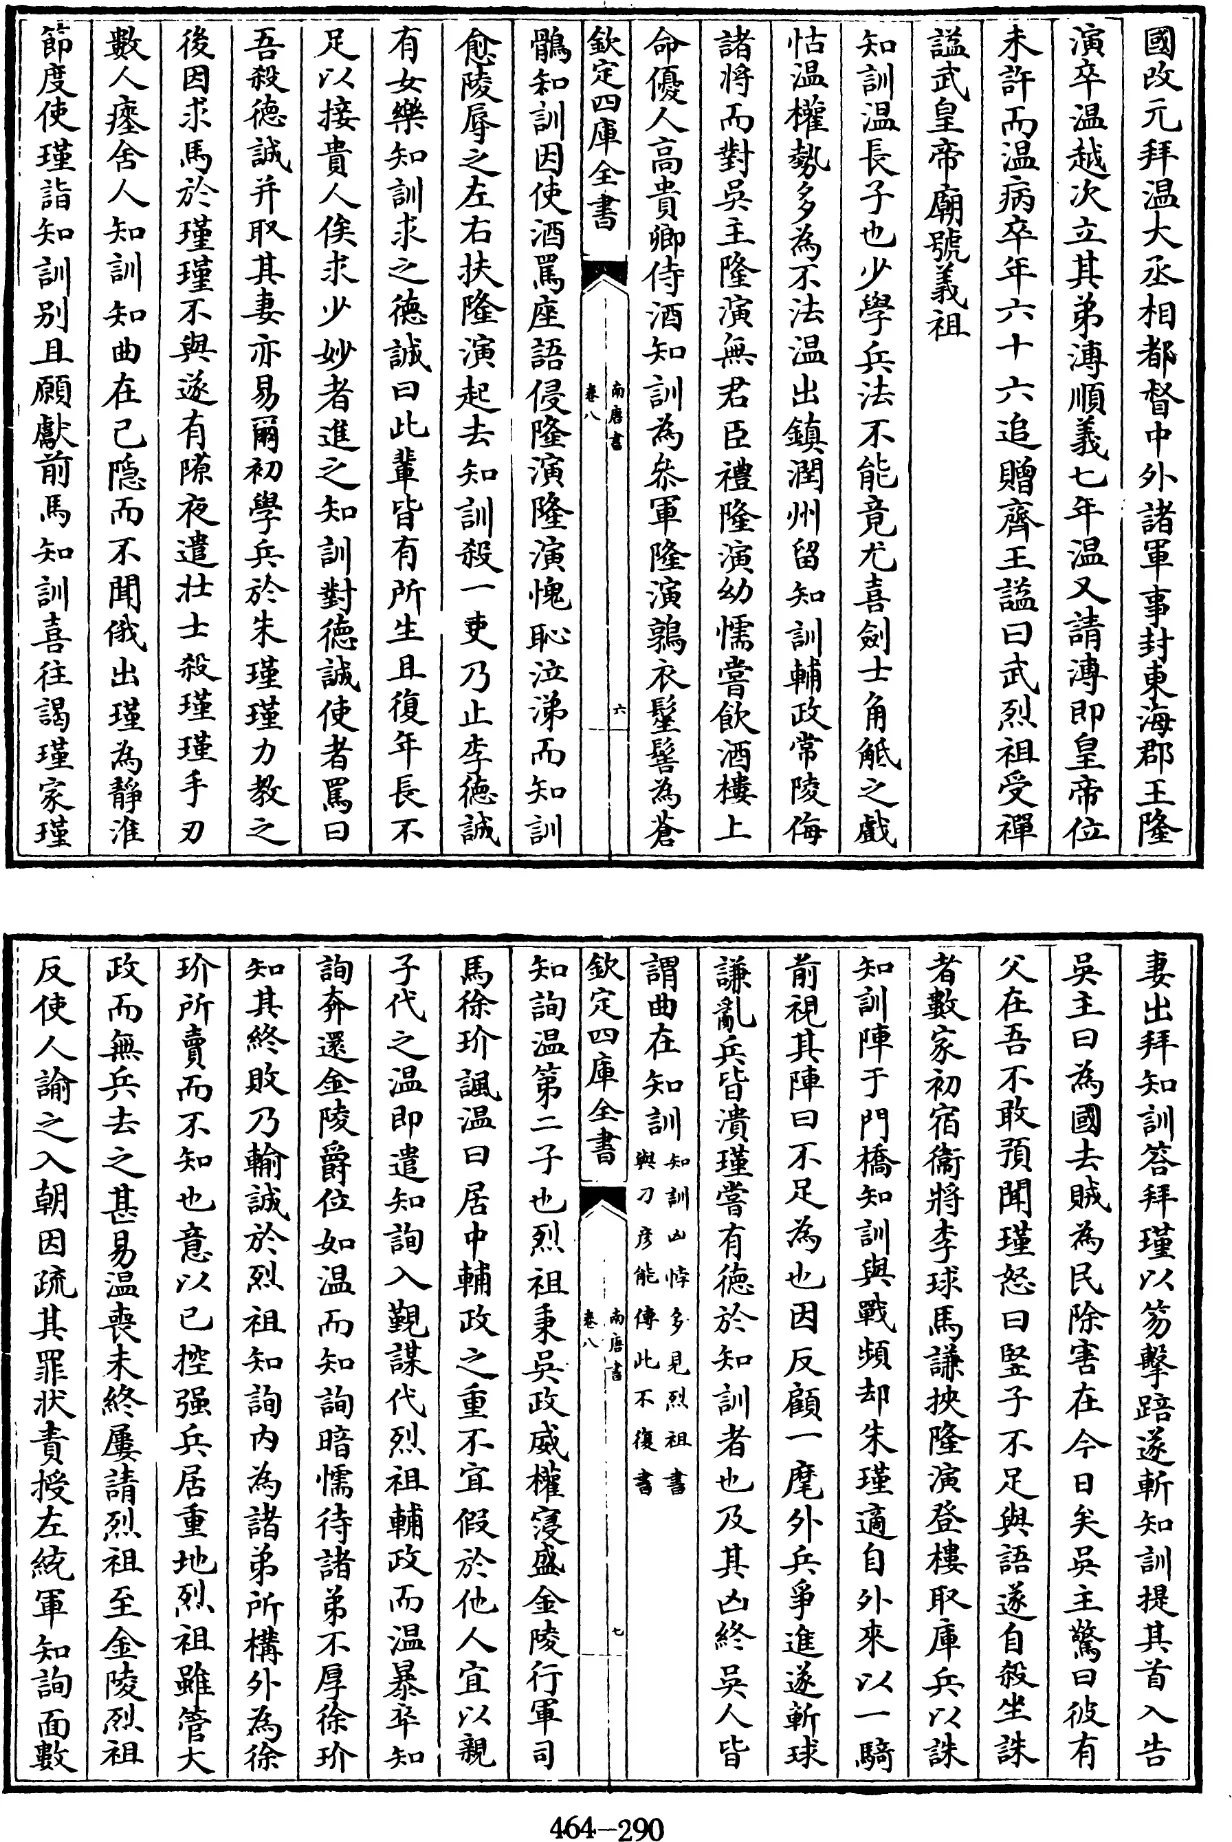 國改元拜温大丞相都督中外諸軍事封東海郡王隆
演卒温越次立其弟溥順義七年温又請溥即皇帝位
未許而温病卒年六十六追贈齊王謚曰武烈祖受禪
謚武皇帝廟號義祖
知訓温長子也少學兵法不能竟尤喜劍士角觝之戲
怙温權勢多為不法温出鎮潤州留知訓輔政常陵侮
諸將而對吳主隆演無君臣禮隆演幼懦嘗飲酒樓上
命優人高貴卿侍酒知訓為叅軍隆演鶉衣髽髻為蒼
欽定四庫全書
南唐書
卷八
六
鶻知訓因使酒罵座語侵隆演隆演愧恥泣涕而知訓
愈陵辱之左右扶隆演起去知訓殺一吏乃止李德誠
有女樂知訓求之德誠曰此輩皆有所生且復年長不
足以接貴人俟求少妙者進之知訓對德誠使者罵曰
吾殺德誠并取其妻亦易爾初學兵於朱瑾瑾力教之
後因求馬於瑾瑾不與遂有隙夜遣壯士殺瑾瑾手刃
數人瘞舍人知訓知曲在己隱而不聞俄出瑾為靜淮
節度使瑾詣知訓别且願獻前馬知訓喜往謁瑾家瑾
妻出拜知訓答拜瑾以笏擊踣遂斬知訓提其首入告
吳主曰為國去賊為民除害在今日矣吳主驚曰彼有
父在吾不敢預聞瑾怒曰竪子不足與語遂自殺坐誅
者數家初宿衞將李球馬謙挾隆演登樓取庫兵以誅
知訓陣于門橋知訓與戰頻却朱瑾適自外來以一騎
前視其陣曰不足為也因反顧一麾外兵爭進遂斬球
謙亂兵皆潰瑾嘗有德於知訓者也及其凶終吳人皆
謂曲在知訓知訓凶悖多見烈祖書
與刁彥能傳此不復書
欽定四庫全書
南唐書
卷八
七
知詢温第二子也烈祖秉吳政威權寖盛金陵行軍司
馬徐玠諷温曰居中輔政之重不宜假於他人宜以親
子代之温即遣知詢入覲謀代烈祖輔政而温暴卒知
詢奔還金陵爵位如温而知詢暗懦待諸弟不厚徐玠
知其終敗乃輸誠於烈祖知詢内為諸弟所構外為徐
玠所賣而不知也意以已控强兵居重地烈祖雖管大
政而無兵去之甚易温喪未終屢請烈祖至金陵烈祖
反使人諭之入朝因疏其罪狀責授左統軍知詢面數
464-290